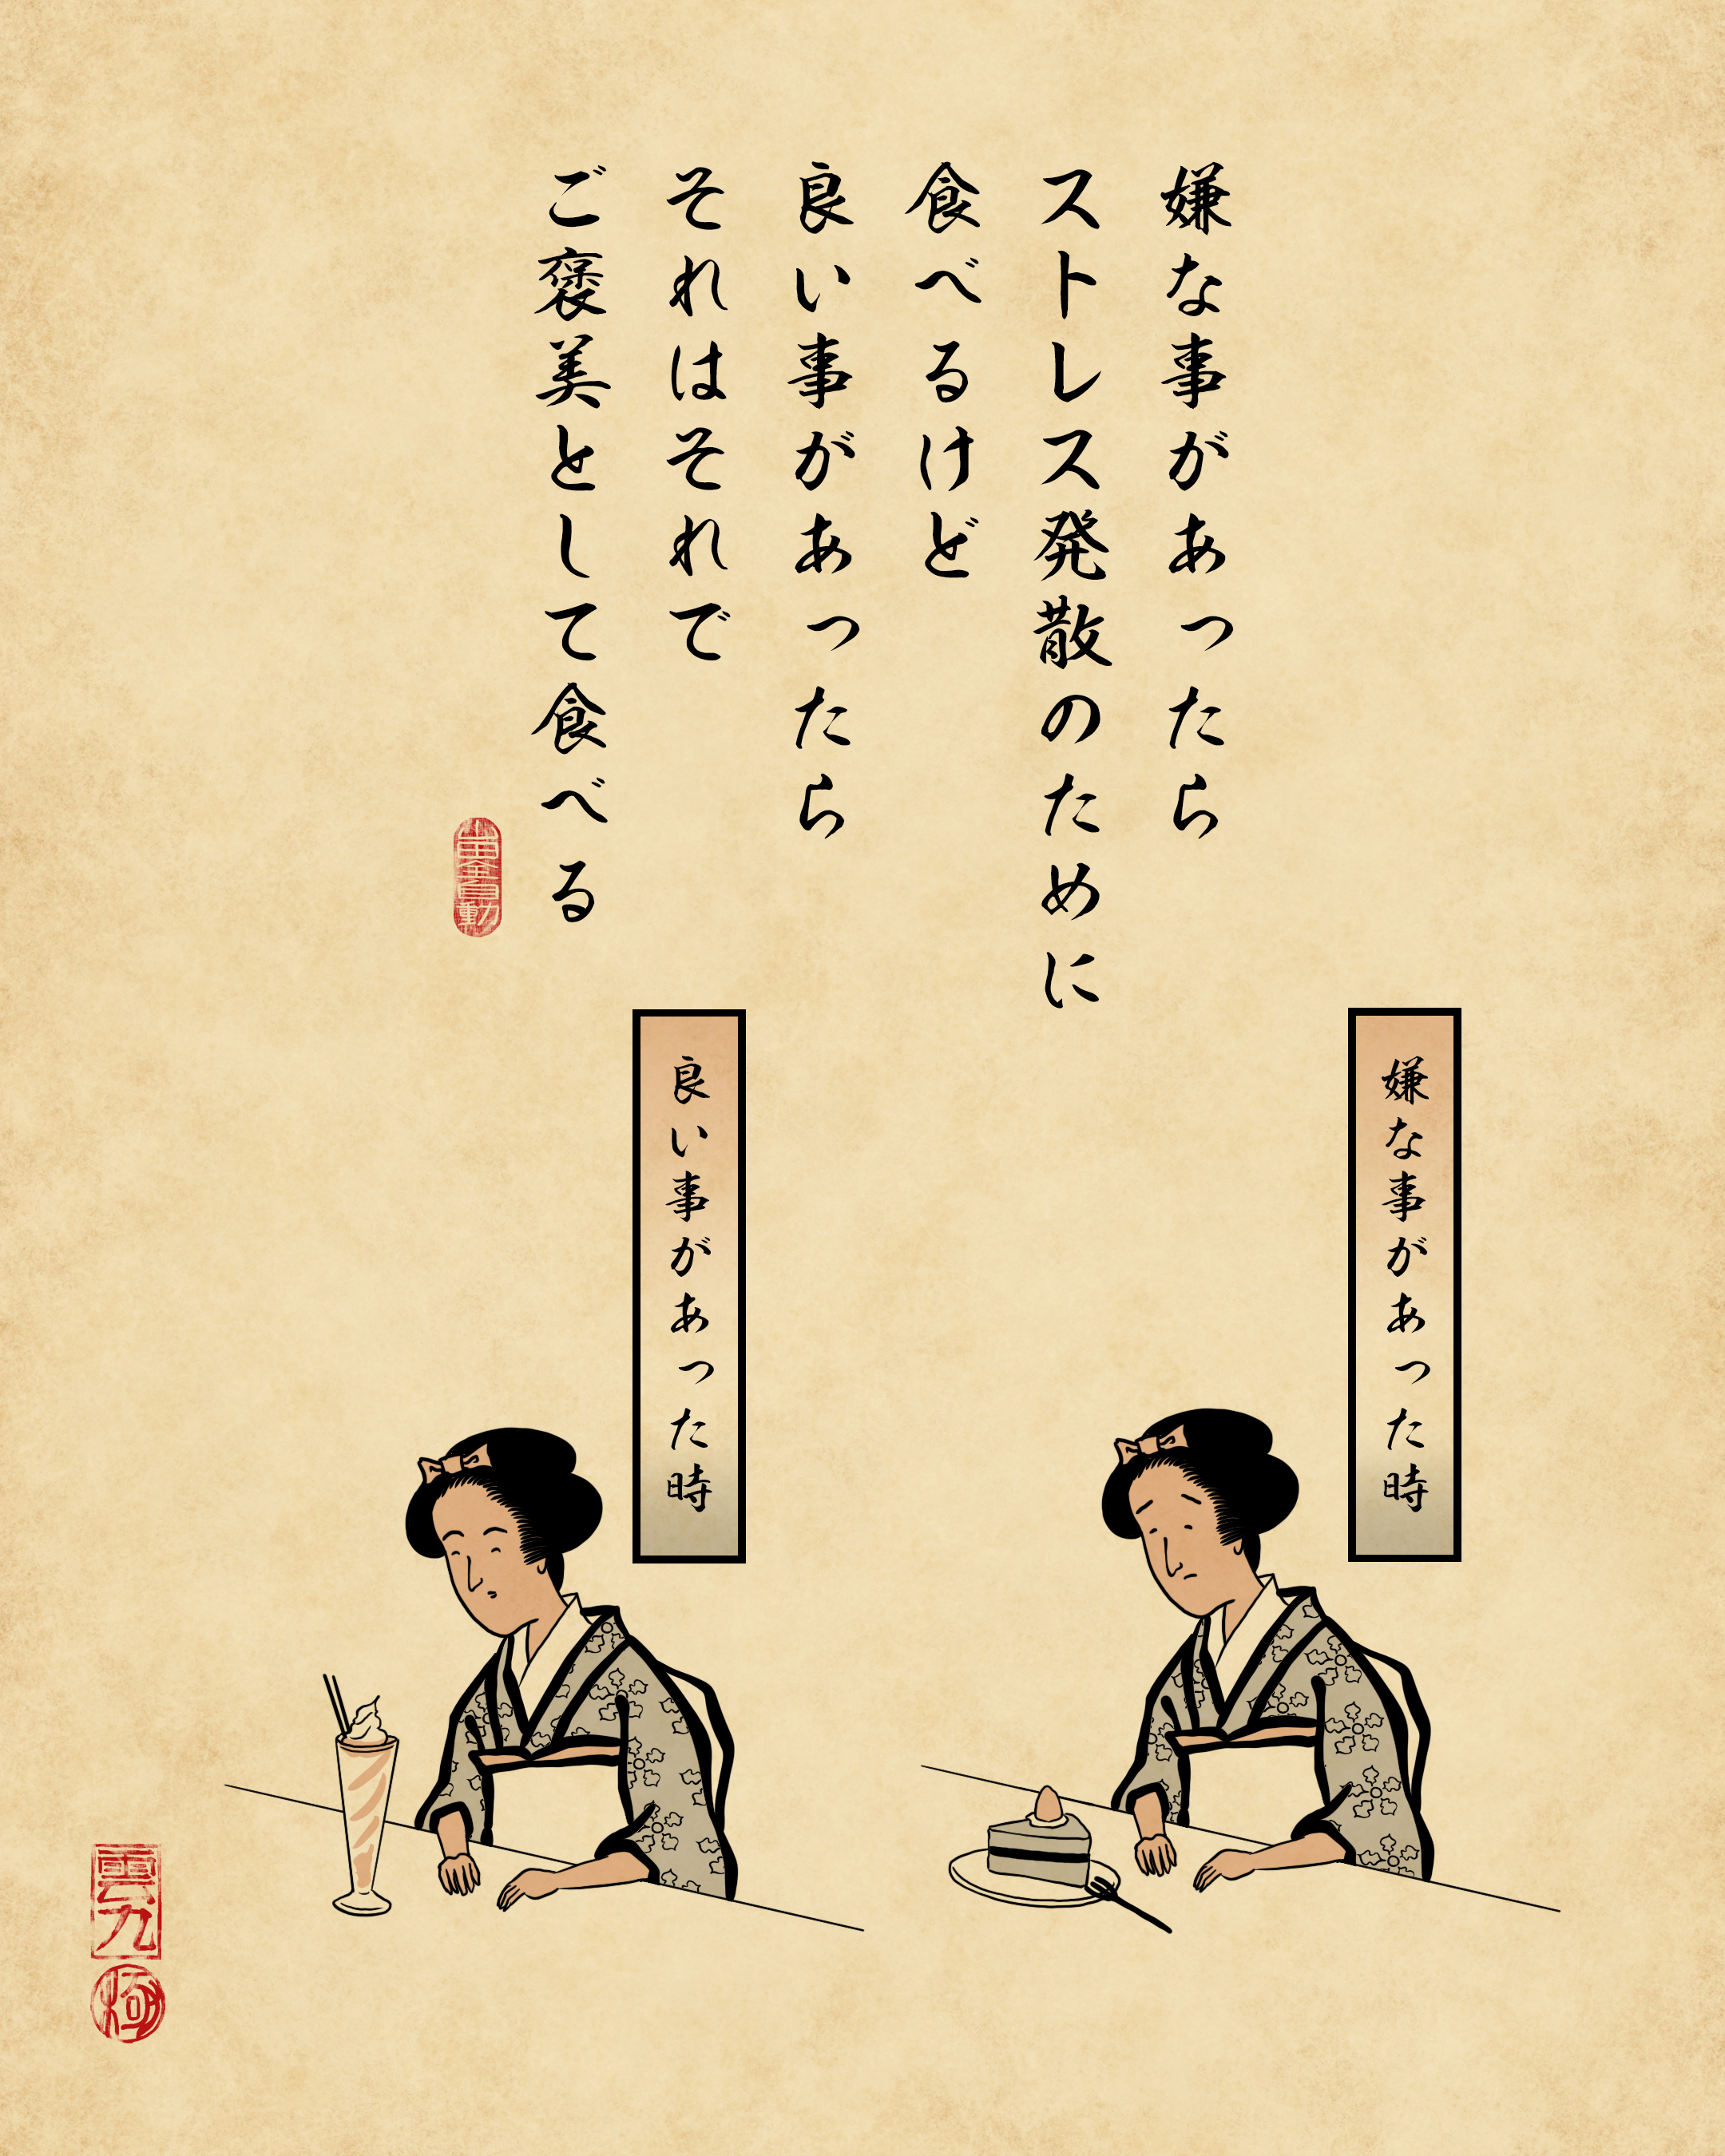 嫌な事があったら
ストレス発散のために
食べるけど
良い事があったら
それはそれで
ご褒美として食べる
嫌な事があった時
良い事があった時